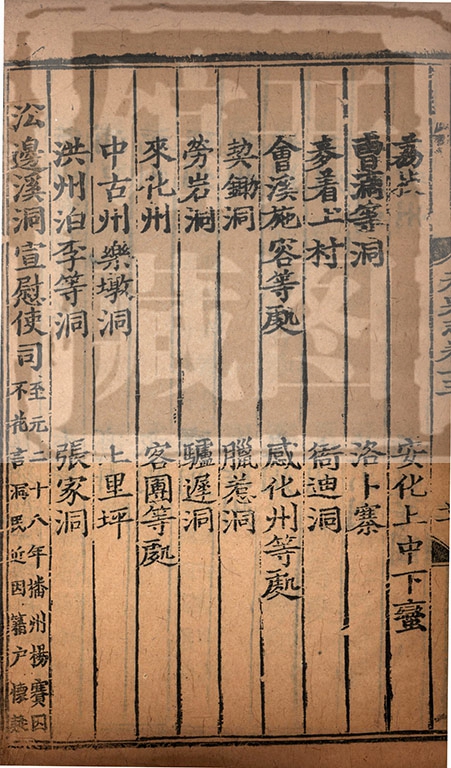 元史志卷十三
荔枝 安化上中下蠻
曹滴等洞 洛卜寨
麥着土村 衙迪洞
會溪施容等處 感化州等處
契鋤洞 臘惹洞
勞岩洞 驢遲洞
來化州 客團等處
中古州樂墩洞 上里坪
洪州泊李等洞 張家洞
沿邊溪洞宣慰使司 至元二十八年播州楊賽因
不花言洞民近因籍户懷疑